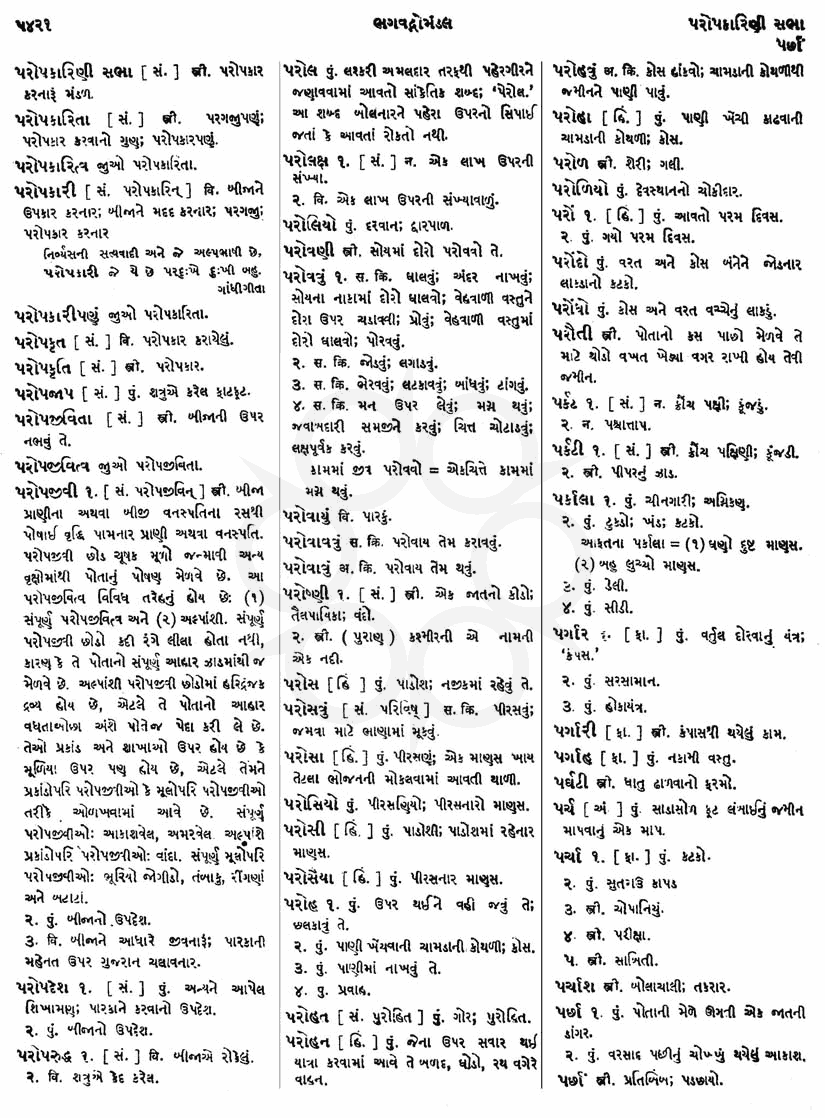 ૫૪૨૧
ભગવદ્ગોમંડલ
પરોપકારિણી સભા
પર્છાં
પરોપકારિણી સભા [ સં. ] સ્ત્રી. પરોપકાર
કરનારૂં મંડળ.
પરોપકારિતા [ સં. ] સ્ત્રી. પરગજુપણું;
પરોપકાર કરવાનો ગુણ; પરોપકારપણું.
પરોપકારિત્વ જુઓ પરોપકારિતા.
પરોપકારી [ સં. પરોપકારિન્ ] વિ. બીજાને
ઉપકાર કરનાર; બીજાને મદદ કરનાર; પરગજુ;
પરોપકાર કરનાર
નિર્વ્યસની સત્યવાદી અને જે અલ્પભાષી છે,
પરોપકારી જે યે છે પરદુઃખે દુઃખી બહુ.
ગાંધીગીતા
પરોપકારીપણું જુઓ પરોપકારિતા.
પરોપકૃત [ સં. ] વિ. પરોપકાર કરાયેલું.
પરોપકૃતિ [ સં. ] સ્ત્રી. પરોપકાર.
પરોપજાપ [ સં. ] પું. શત્રુએ કરેલ ફાટફૂટ.
પરોપજીવિતા [ સં. ] સ્ત્રી. બીજાની ઉપર
નભવું તે.
પરોપજીવિત્વ જુઓ પરોપજીવિતા.
પરોપજીવી ૧. [ સં. પરોપજીવિન્ ] સ્ત્રી. બીજા
પ્રાણીના અથવા બીજી વનસ્પતિના રસથી
પોષાઈ વૃદ્ધિ પામનાર પ્રાણી અથવા વનસ્પતિ.
પરોપજીવી છોડ ચૂષક મૂળો જન્માવી અન્ય
વૃક્ષોમાંથી પોતાનું પોષણ મેળવે છે. આ
પરોપજીવિત્વ વિવિધ તરેહનું હોય છે: (૧)
સંપૂર્ણ પરોપજીવિત્વ અને (૨) અલ્પાંશી. સંપૂર્ણ
પરોપજીવી છોડો કદી રંગે લીલા હોતા નથી,
કારણ કે તે પોતાનો સંપૂર્ણ આહાર ઝાડમાંથી જ
મેળવે છે. અલ્પાંશી પરોપજીવી છોડોમાં હરિદ્રંજક
દ્રવ્ય હોય છે, એટલે તે પોતાનો આહાર
વધતાઓછા અંશે પોતેજ પેદા કરી લે છે.
તેઓ પ્રકાંડ અને શાખાઓ ઉપર હોય છે કે
મૂળિયા ઉપર પણ હોય છે, એટલે તેમને
પ્રકાંડોપરિ પરોપજીવીઓ કે મૂલોપરિ પરોપજીવીઓ
તરીકે ઓળખવામાં આવે છે. સંપૂર્ણ
પરોપજીવીઓ: આકાશવેલ, અમરવેલ અલ્પાંશે
પ્રકાંડોપરિ પરોપજીવીઓ: વાંદા. સંપૂર્ણ મૂલોપરિ
પરોપજીવીઓ: ભૂરિયો જોગીડો, તંબાકુ, રીંગણાં
અને બટાટાં.
૨. પું. બીજાનો ઉપદેશ.
૩. વિ. બીજાને આધારે જીવનારૂં; પારકાની
મહેનત ઉપર ગુજરાન ચલાવનાર.
પરોપદેશ ૧. [ સં. ] પું. અન્યને આપેલ
શિખામણ; પારકાને કરવાનો ઉપદેશ.
૨. પું. બીજાનો ઉપદેશ.
પરોપરુદ્ધ ૧. [ સં. ] વિ. બીજાએ રોકેલું.
૨. વિ. શત્રુએ કેદ કરેલ.
પરોલ પું. લશ્કરી અમલદાર તરફથી પહેરગીરને
જણાવવામાં આવતો સાંકેતિક શબ્દ; ‘પેરોલ.’
આ શબ્દ બોલનારને પહેરા ઉપરનો સિપાઈ
જતાં કે આવતાં રોકતો નથી.
પરોલક્ષ ૧. [ સં. ] ન. એક લાખ ઉપરની
સંખ્યા.
૨. વિ. એક લાખ ઉપરની સંખ્યાવાળું.
પરોલિયો પું. દરવાન; દ્વારપાળ.
પરોવણી સ્ત્રી. સોયમાં દોરો પરોવવો તે.
પરોવવું ૧. સ. ક્રિ. ઘાલવું; અંદર નાખવું;
સોયના નાકામાં દોરો ઘાલવો; વેહવાળી વસ્તુને
દોરા ઉપર ચડાવવી; પ્રોવું; વેહવાળી વસ્તુમાં
દોરો ઘાલવો; પોરવવું.
૨. સ. ક્રિ. જોડવું; લગાડવું.
૩. સ. ક્રિ. ભેરવવું; લટકાવવું; બાંધવું; ટાંગવું.
૪. સ. ક્રિ. મન ઉપર લેવું; મગ્ન થવું;
જવાબદારી સમજીને કરવું; ચિત્ત ચોટાડવું;
લક્ષપૂર્વક કરવું.
કામમાં જીવ પરોવવો = એકચિત્તે કામમાં
મગ્ન થવું.
પરોવાયું વિ. પારકું.
પરોવાવવું સ. ક્રિ. પરોવાય તેમ કરાવવું.
પરોવાવું અ. ક્રિ. પરોવાય તેમ થવું.
પરોષ્ણી ૧. [ સં. ] સ્ત્રી. એક જાતનો કીડો;
તૈલપાયિકા; વંદો.
૨. સ્ત્રી. ( પુરાણ ) કશ્મીરની એ નામની
એક નદી.
પરોસ [ હિં ] પું. પાડોશ; નજીકમાં રહેવું તે.
પરોસવું [ સં. પરિવિષ્ ] સ. ક્રિ. પીરસવું;
જમવા માટે ભાણામાં મૂકવું.
પરોસા [ હિં. ] પું. પીરસણું; એક માણસ ખાય
તેટલા ભોજનની મોકલવામાં આવતી થાળી.
પરોસિયો પું. પીરસણિયો; પીરસનારો માણસ.
પરોસી [ હિં. ] પું. પાડોશી; પાડોશમાં રહેનાર
માણસ.
પરોસૈયા [ હિં. ] પું. પીરસનાર માણસ.
પરોહ ૧. પું. ઉપર થઈને વહી જવું તે;
છલકાવું તે.
૨. પું. પાણી ખેંચવાની ચામડાની કોથળી; કોસ.
૩. પું. પાણીમાં નાખવું તે.
૪. પું. પ્રવાહ.
પરોહત [ સં. પુરોહિત ] પું. ગોર; પુરોહિત.
પરોહન [ હિં. ] પું. જેના ઉપર સવાર થઈ
યાત્રા કરવામાં આવે તે બળદ, ઘોડો, રથ વગેરે
વાહન.
પરોહવું અ. ક્રિ. કોસ હાંકવો; ચામડાની કોથળીથી
જમીનને પાણી પાવું.
પરોહા [ હિં. ] પું. પાણી ખેંચી કાઢવાની
ચામડાની કોથળી; કોસ.
પરોળ સ્ત્રી. શેરી; ગલી.
પરોળિયો પું. દેવસ્થાનનો ચોકીદાર.
પરોં ૧. [ હિં. ] પું. આવતો પરમ દિવસ.
૨. પું. ગયો પરમ દિવસ.
પરોંદો પું. વરત અને કોસ બંનેને જોડનાર
લાકડાનો કટકો.
પરોંધો પું. કોસ અને વરત વચ્ચેનું લાકડું.
પરૌતી સ્ત્રી. પોતાનો કસ પાછો મેળવે તે
માટે થોડો વખત ખેડ્યા વગર રાખી હોય તેવી
જમીન.
પર્કટ ૧. [ સં. ] ન. ક્રૌંચ પક્ષી; કૂંજડું.
૨. ન. પશ્ચાત્તાપ.
પર્કટી ૧. [ સં. ] સ્ત્રી. ક્રૌંચ પક્ષિણી; કૂંજડી.
૨. સ્ત્રી. પીપરનું ઝાડ.
પર્કાલા ૧. પું. ચીનગારી; અગ્નિકણ.
૨. પું. ટુકડો; ખંડ; કટકો.
આફતના પર્કાલા = (૧) ઘણો દુષ્ટ માણસ.
(૨) બહુ લુચ્ચો માણસ.
૩. પું. ડેલી.
૪. પું. સીડી.
પર્ગાર ૧. [ ફા. ] પું. વર્તુલ દોરવાનું યંત્ર;
‘કંપસ.’
૨. પું. સરસામાન.
૩. પું. હોકાયંત્ર.
પર્ગારી [ ફા. ] સ્ત્રી. કંપાસથી થયેલું કામ.
પર્ગાહ [ ફા. ] પું. નકામી વસ્તુ.
પર્ઘટી સ્ત્રી. ધાતુ ઢાળવાનો ફરમો.
પર્ચ [ અં ] પું. સાડાસોળ ફૂટ લંબાઈનું જમીન
માપવાનું એક માપ.
પર્ચા ૧. [ ફા. ] પું. કટકો.
૨. પું. સુતરાઉ કાપડ
૩. સ્ત્રી. ચોપાનિયું.
૪. સ્ત્રી. પરીક્ષા.
૫. સ્ત્રી. સાબિતી.
પર્ચાશ સ્ત્રી. બોલાચાલી; તકરાર.
પર્છા ૧. પું. પોતાની મેળે ઊગતી એક જાતની
ડાંગર.
૨. પું. વરસાદ પછીનું ચોખ્ખું થયેલું આકાશ.
પર્છાં સ્ત્રી. પ્રતિબિંબ; પડછાયો.